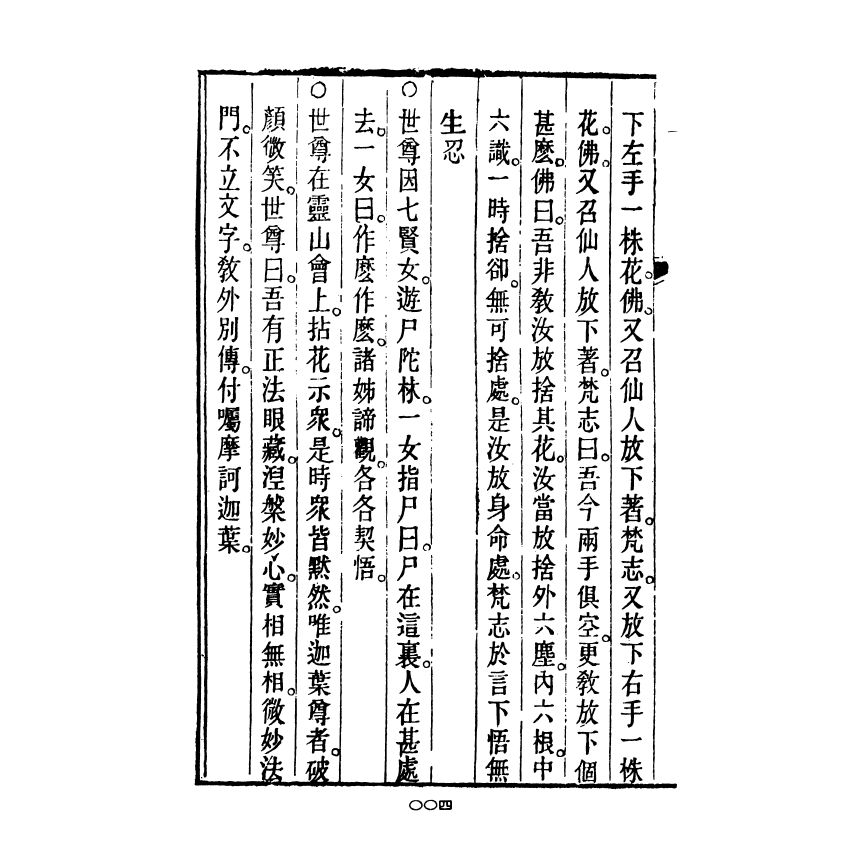 下左手一株花。佛。又召仙人放下著。梵志。又放下右手一株
花。佛。又召仙人放下著。梵志曰。吾今兩手俱空。更教放下個
甚麽。佛曰。吾非教汝放捨其花。汝當放捨外六塵。內六根。中
六識。一時捨卻。無可捨處。是汝放身命處。梵志於言下悟無
生忍
○世尊因七賢女。遊尸陀林。一女指尸曰。尸在這裏。人在甚處
去。一女曰。作麽作麽。諸姊諦觀。各各契悟。
○世尊在靈山會上。拈花示衆。是時衆皆默然。唯迦葉尊者。破
顏微笑。世尊曰。吾有正法眼藏。涅槃妙心。實相無相。微妙法
門。不立文字。敎外別傳。付囑摩訶迦葉。
○○四